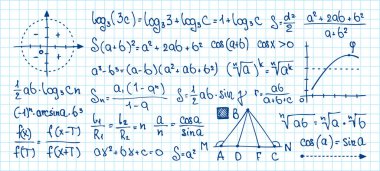 log₃(3c)=log₃3+log₃c=1+log₃c
S=d²/2
a²+2ab+b²/a+b²
S(a+b)²=a²+2ab+b²
cos(a+b) cosx>0
a³-b³=(a-b)(a²+ab+b²)
(ⁿ√a)ᵏ=ⁿ√aᵏ
φ
1/2 ab·log₃cn
Sₙ=a₁(1-qⁿ)/1-q
S=1/2 ab·sin y
r=ab/a+b+c
(-1)ⁿ·arcsina·b³
b₁/R₁=b₂/R₂=n
a/n=cosa/sina
B
ⁿ√ab=ⁿ√a·ⁿ√b
f(x)/f(T)=f(x-T)/f(x+T)
ax²+bx+c=0
S=a²
M A D F C N
cos(a)=sina